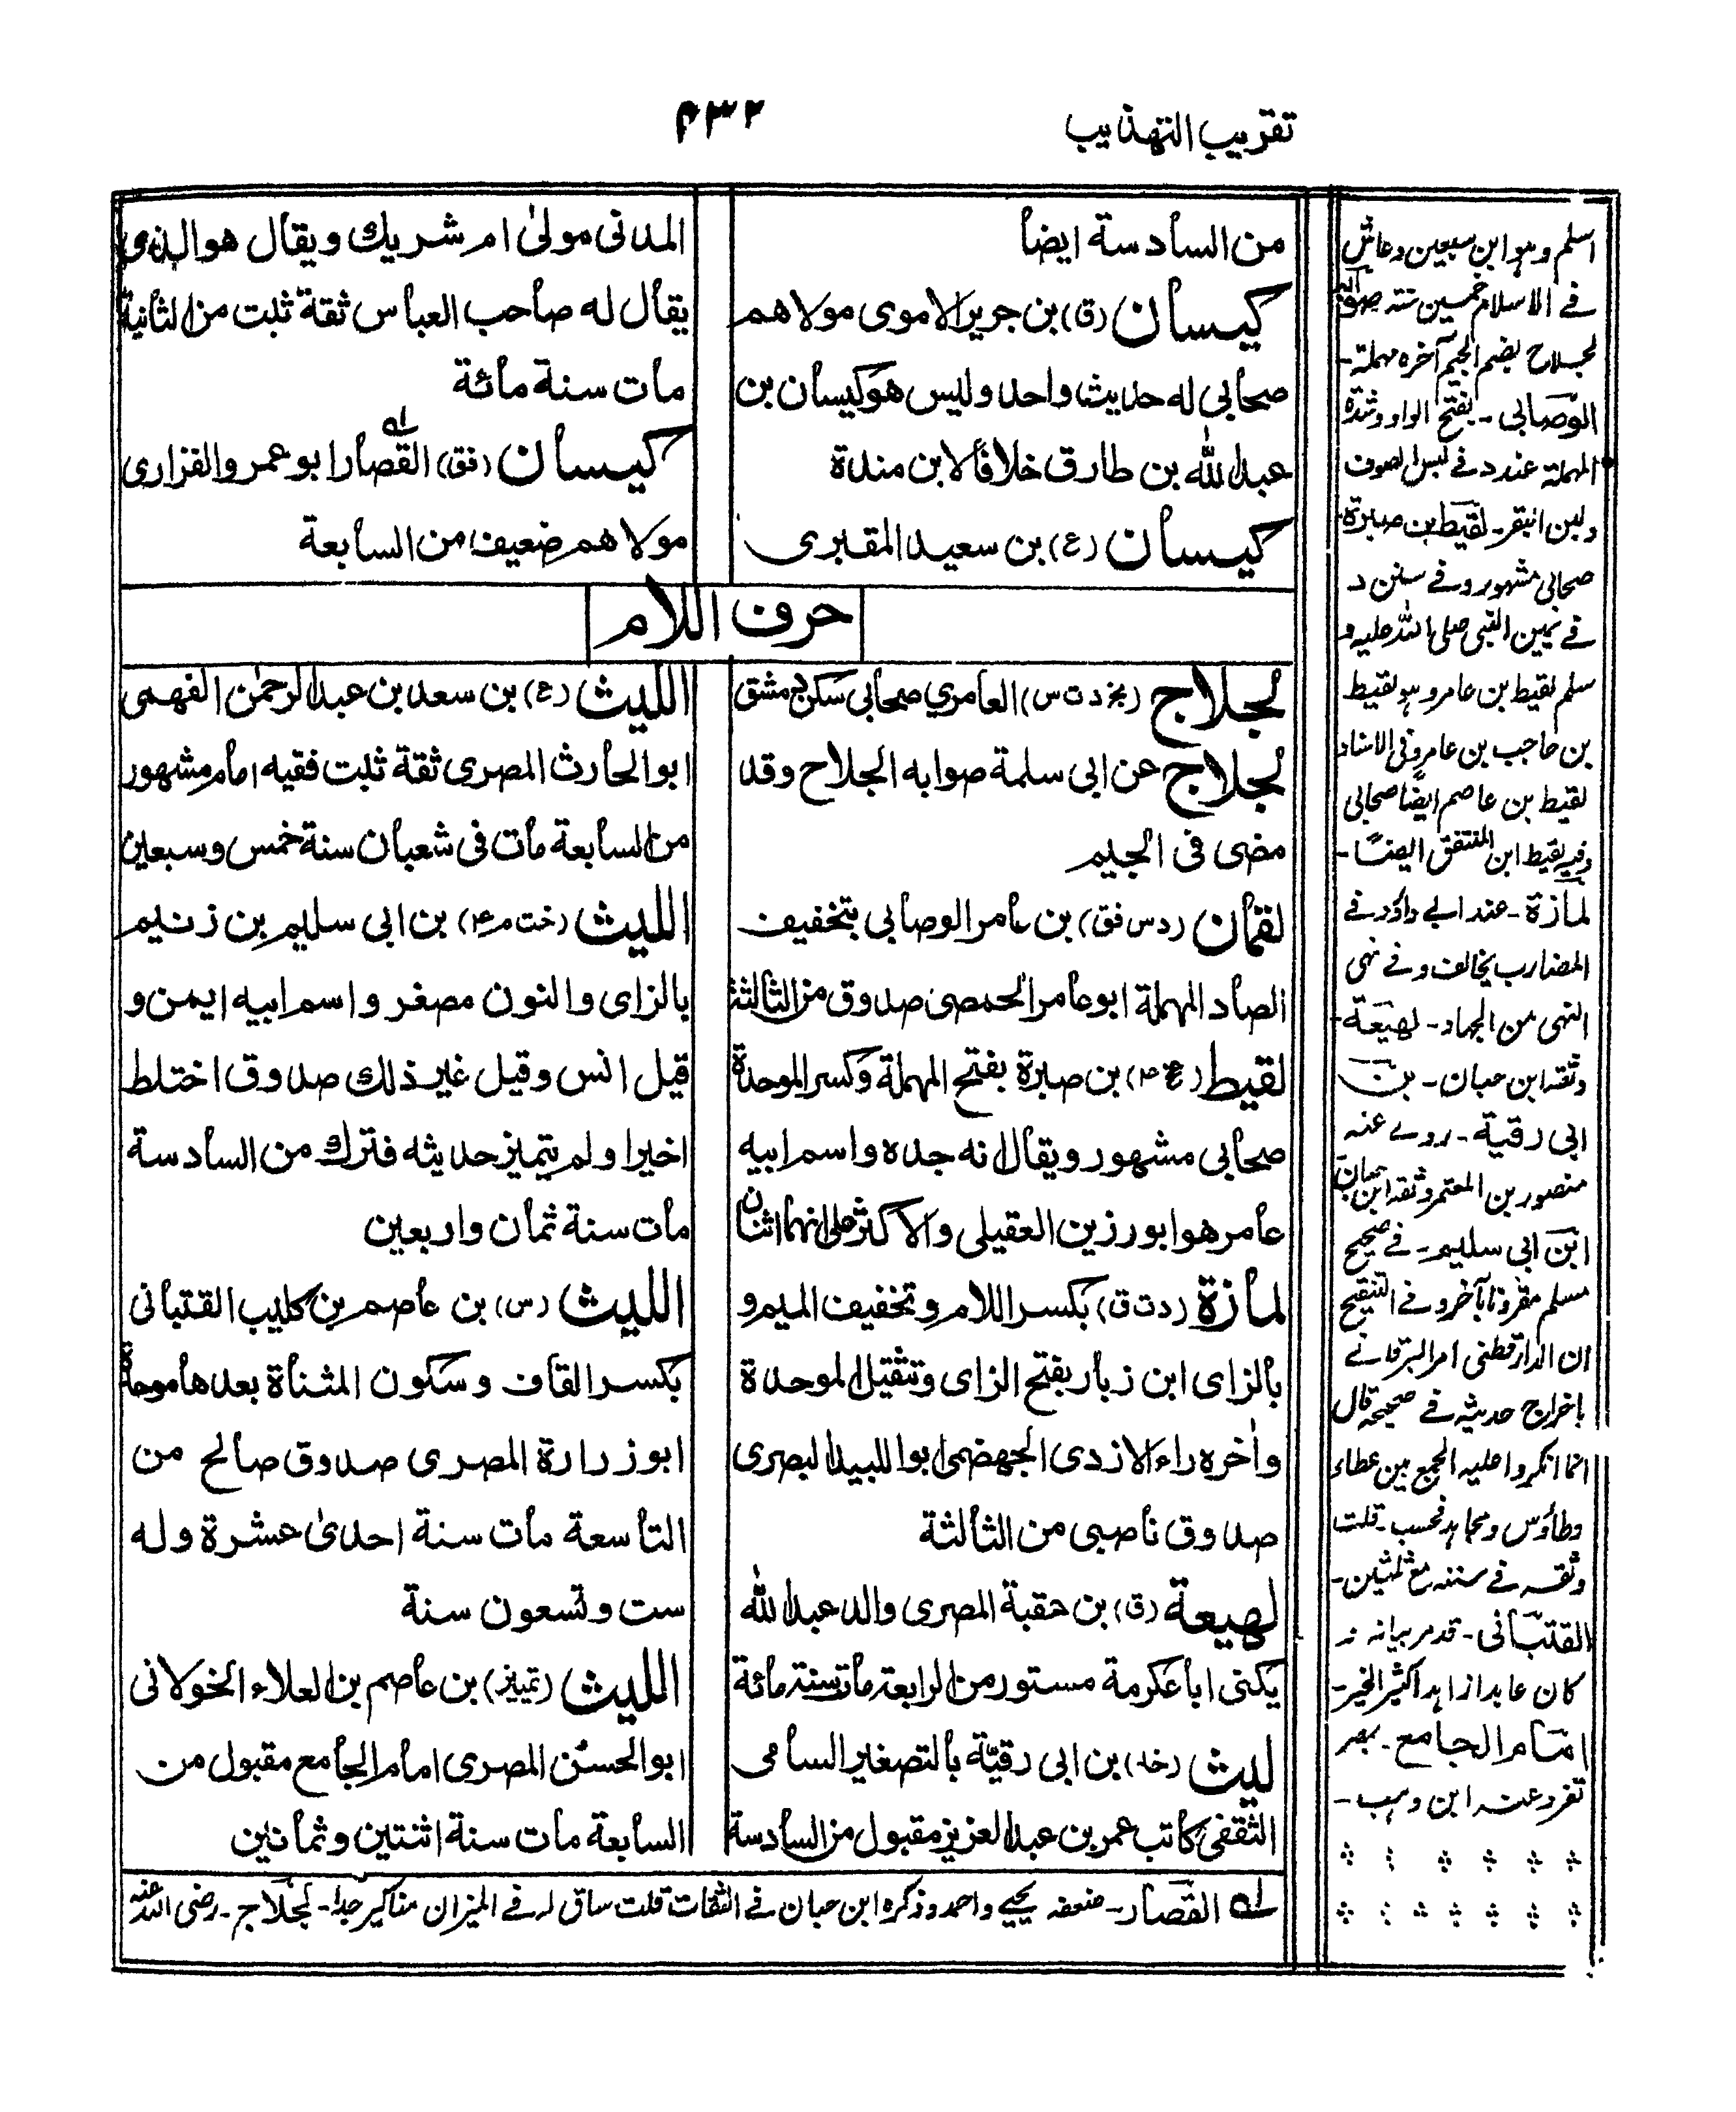 تقريب التهذيب
٤٣٢
من السادسة ايضا
كيسان (ق) بن جرير الاموى مولاهم
صحابى له حديث واحد وليس هو كيسان بن
عبدالله بن طارق خلافا لابن مندة
كيسان (ع) بن سعيد المقبرى
المدنى مولى ام شريك ويقال هو الذى
يقال له صاحب العباس ثقة ثبت من الثانية
مات سنة مائة
كيسان (فق) القصار ابو عمرو الفزارى
مولاهم ضعيف من السابعة
حرف اللام
لجلاج (بخ د ت س) العامري صحابى سكن دمشق
لجلاج عن ابى سلمة صوابه الجلاح وقد
مضى فى الجيم
لقمان (د س فق) بن عامر الوصابى بتخفيف
الصاد المهملة ابو عامر الحمصى صدوق من الثالثة
لقيط (بخ ٤) بن صبرة بفتح المهملة وكسر الموحدة
صحابى مشهور ويقال انه جده واسم ابيه
عامر هو ابو رزين العقيلى والاكثر على انهما اثنان
لمازة (د ت ق) بكسر اللام وتخفيف الميم و
بالزاى ابن زبار بفتح الزاى وتثقيل الموحدة
وأخره راء الازدى الجهضمى ابو اللبيد البصرى
صدوق ناصبى من الثالثة
لهيعة (ق) بن عقبة المصرى والد عبدالله
يكنى ابا عكرمة مستور من الرابعة مات سنة مائة
ليث (خد) بن ابى رقيّة بالتصغير السامى
الثقفى كاتب عمر بن عبد العزيز مقبول من السادسة
الليث (ع) بن سعد بن عبد الرحمن الفهمى
ابو الحارث المصرى ثقة ثبت فقيه امام مشهور
من السابعة مات فى شعبان سنة خمس وسبعين
الليث (خت م ٤) بن ابى سليم بن زنيم
بالزاى والنون مصغر واسم ابيه ايمن و
قيل انس وقيل غير ذلك صدوق اختلط
اخيرا ولم يتميز حديثه فترك من السادسة
مات سنة ثمان واربعين
الليث (س) بن عاصم بن كليب القتبانى
بكسر القاف وسكون المثناة بعدها موحدة
ابو زرارة المصرى صدوق صالح من
التاسعة مات سنة احدى عشرة وله
ست وتسعون سنة
الليث (تمييز) بن عاصم بن العلاء الخولانى
ابو الحسن المصرى امام الجامع مقبول من
السابعة مات سنة اثنتين وثمانين
اسلم وهو ابن سبعين وعاش
فے الاسلام خمسين سنة صوابه
لجلاح بضم الجيم آخره مهملة-
الوصابى- بفتح الواو وشدة
المهملة عند د فے لبس الصوف
لقيط بن صبرة-
صحابى مشهور وفے سنن د
فے يمين النبى صلى الله عليه و
سلم لقيط بن عامر وهو لقيط
بن حاجب بن عامر وفى الاسناد
لقيط بن عاصم ايضا صحابى
وفيه لقيط ابن المنتفق ايضا-
لمازة- عند ابے داؤد فے
المضارب يخالف وفے نهى
النهى من الجهاد- لهيعة-
وثقه ابن حبان- بن
ابى رقية- روے عنه
منصور بن المعتمر وثقه ابن حبان
ابن ابى سليم- فے صحيح
مسلم مقرونا بآخر وفے التنقيح
ان الدارقطنى امر البرقانے
باخراج حديثه فے صحيحه قال
انما انكروا عليه الجمع بين عطاء
وطاؤس ومجاهد فحسب- قلت
القتبانى- قد مر بيانه
كان عابدا زاهدا كثير الخير-
امام الجامع- بمصر
تفرد عنه ابن وهب-
له القصار- ضعفه يحيے واحمد وذكره ابن حبان فے الثقات قلت ساق له فے الميزان مناكير جدا- لجلاج- رضى الله عنه